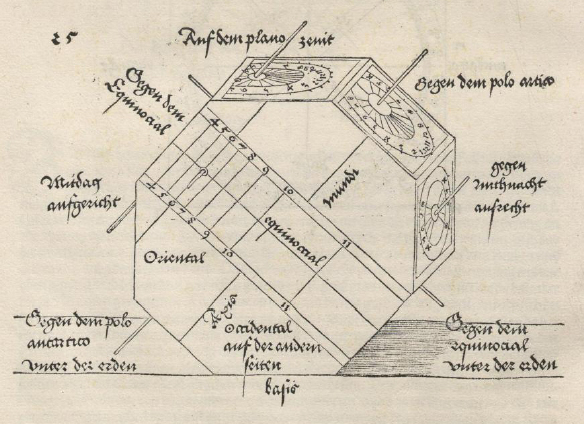 25
Auf dem plano zenit
Gegen dem
Equinocial
Gegen dem polo artico
Mitdag
aufgericht
gegen
mitnacht
aufrecht
4 5 6 7 8 9 10 11
mundi
4 5 6 7 8 9 10 11
equinocial
Oriental
Axis
Occidental
auf der andern
seiten
Gegen dem polo
antartico
vnter der erden
Gegen dem
equinocial
vnter der erden
basis